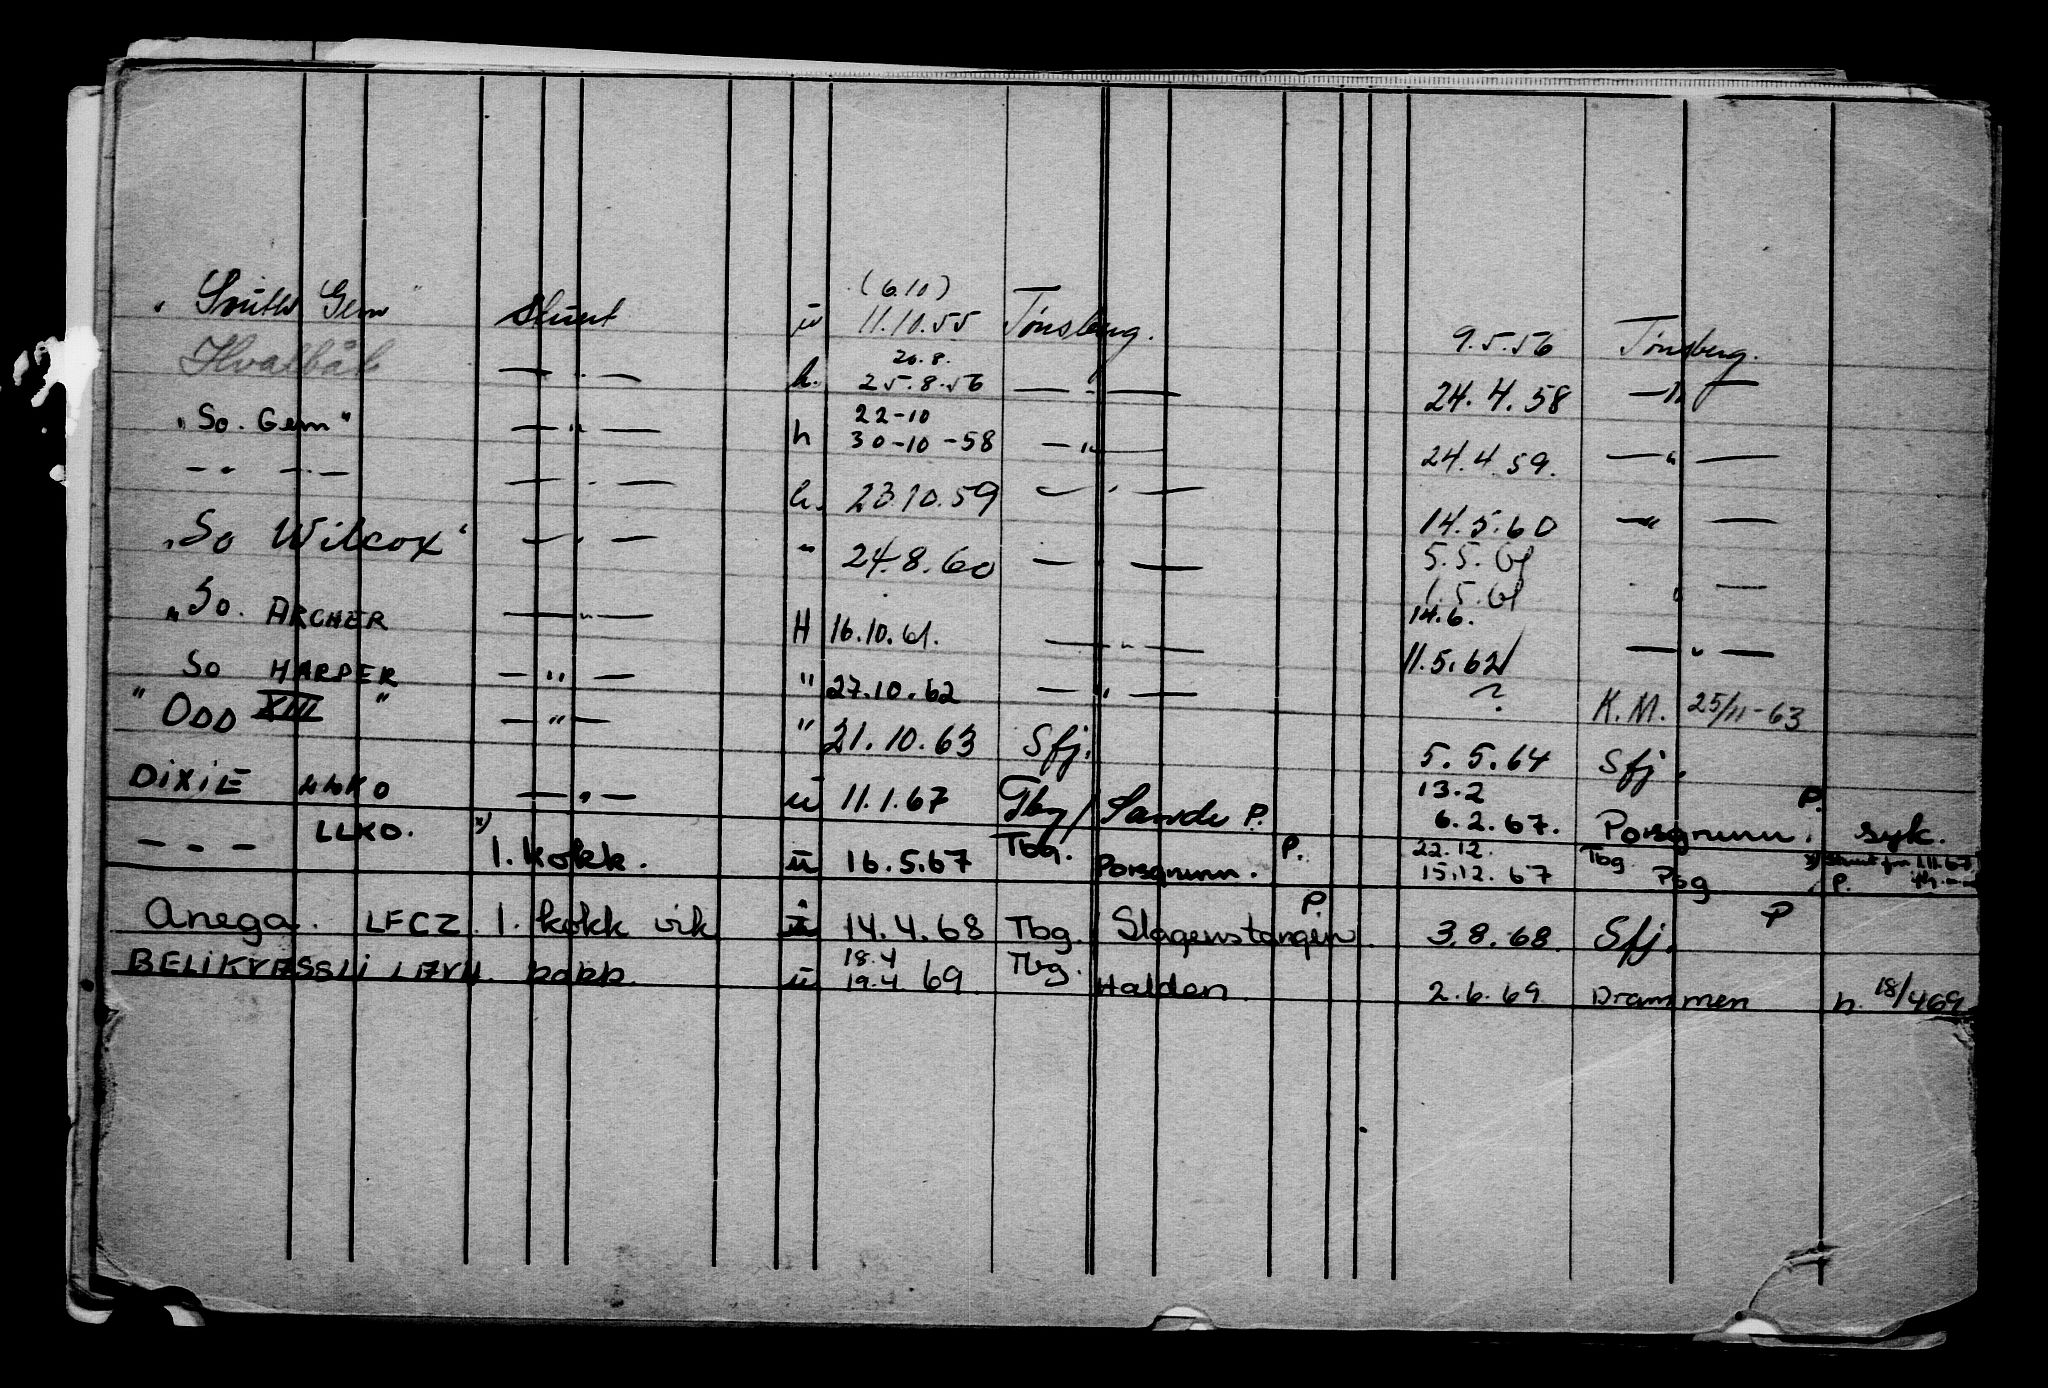 (6.10)
"South Gem" Stuert u 11.10.55 Tønsberg. 9.5.56 Tønsberg.
20.8.
Hvalbåt — . — h. 25.8.56 — - — 24.4.58 — " —
22-10
"So. Gem" — " — h 30-10-58 — " — 24.4.59. — " —
— " — — — . — h. 23.10.59 — " — 14.5.60 — " —
"So Wilcox" — . — " 24.8.60 — " — 5.5.61
1.5.61 " —
14.6.
"So. ARCHER — " — H 16.10.61. — " — 11.5.62 — " —
So HARPER — " — " 27.10.62 — " — ? K.M. 25/11-63
"ODD XIII" — " — " 21.10.63 Sfj. 5.5.64 Sfj.
13.2
DIXIE LLKO — " — u 11.1.67 Tbg/ Sande P. 6.2.67. Porsgrunn. P. syk.
— " — LLKO. x) 1. kokk. u 16.5.67 Tbg. Porsgrunn. P. 22.12. Tbg
15.12.67 Psg P.
Anega. LFCZ 1. kokk vik u 14.4.68 Tbg. Slagenstangen. P. 3.8.68. Sfj. P
18.4
BELIKVASSLI kokk. u 19.4.69 Tbg. Halden. 2.6.69 Drammen h. 18/469